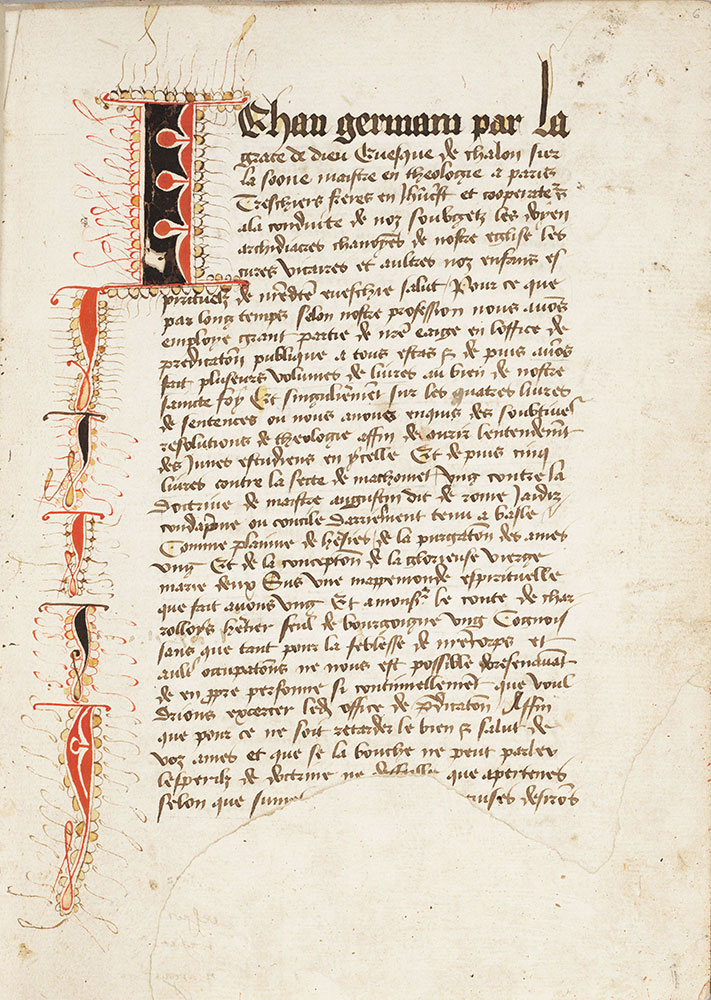 Jehan germain par la
grace de dieu Evesque de chalon sur
la soone maistre en theologie a paris
Treschiers freres en Jhucrist et cooperate's
ala conduite de noz soubgetz les doyen
archidiacres chanoes de nostre eglise les
cures vicaires et aultres noz enfans es
pirituelz de nredte eveschie salut Pour ce que
par long temps selon nostre profession nous avos
employe grant partie de nre eaige en loffice de
predicaton publique a tous estas & de puis avos
fait pluseurs volumes de livres au bien de nostre
saincte foy Et singulieremet sur les quatres livres
de sentences ou nous avons enquis des soubtives
resolutions de theologie affin de ouvrir lentendemt
des Junes estudiens en ycelle Et de puis cinq
livres contre la secte de machomet / ung contre la
doctrine de maistre augustin dit de rome
condapnne ou concile darrienement tenu a basle /
Comme plainne de hesies / de la purgaton des ames
ung Et de la concepton de la glorieuse vierge
marie deux Sus une mappemonde espirituelle
que fait avons ung Et amonsr le conte de char
rolloys hetier seul de bourgoingne ung Cognois
sans que tant pour la feblesse de nre corps et
aultes occupatons ne nous est possible doresenavant
de en ppre personne si continuellement que voul
drions excercer led office de pdicaton Affin
que pour ce ne soit retarder le bien & salut de
voz ames et que se la bouche ne peut parler
lesperit de doctrine ne que apertenes
selon que desirons
6